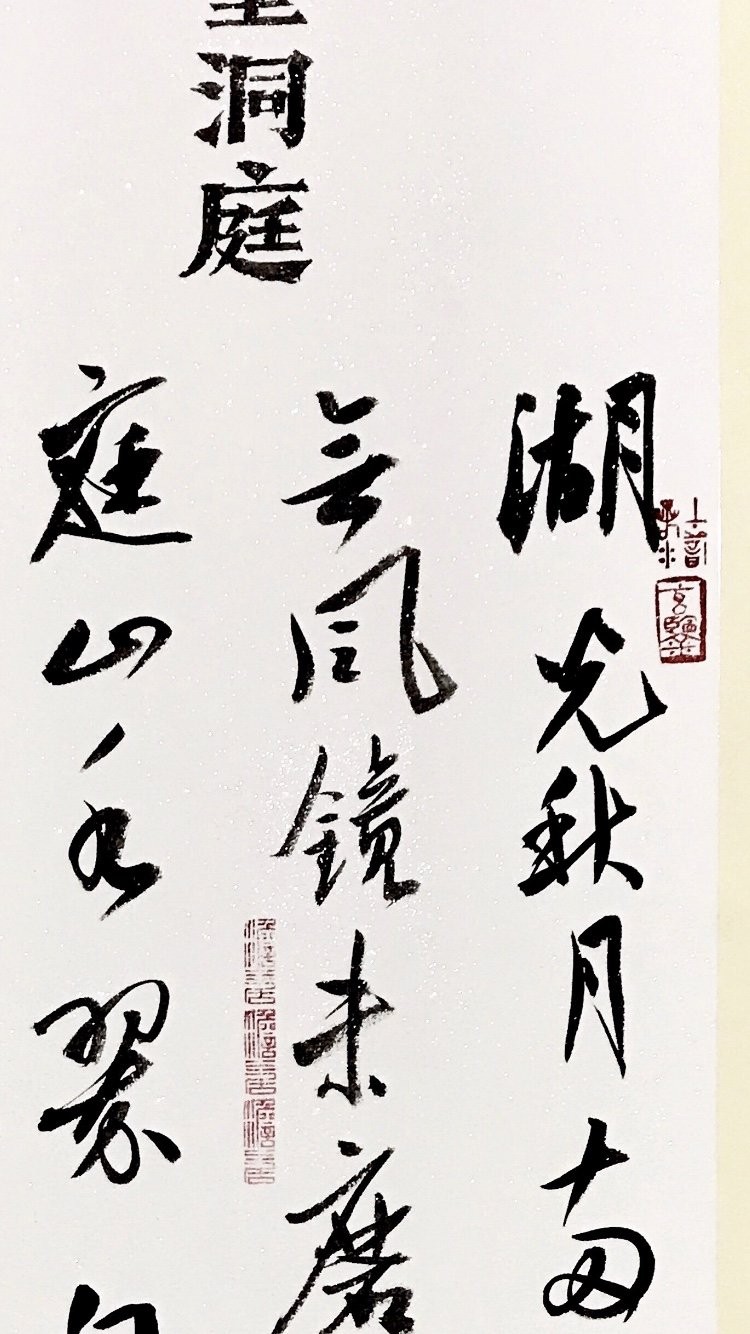 洞庭
湖光秋月兩
無風鏡未磨
庭山水翠